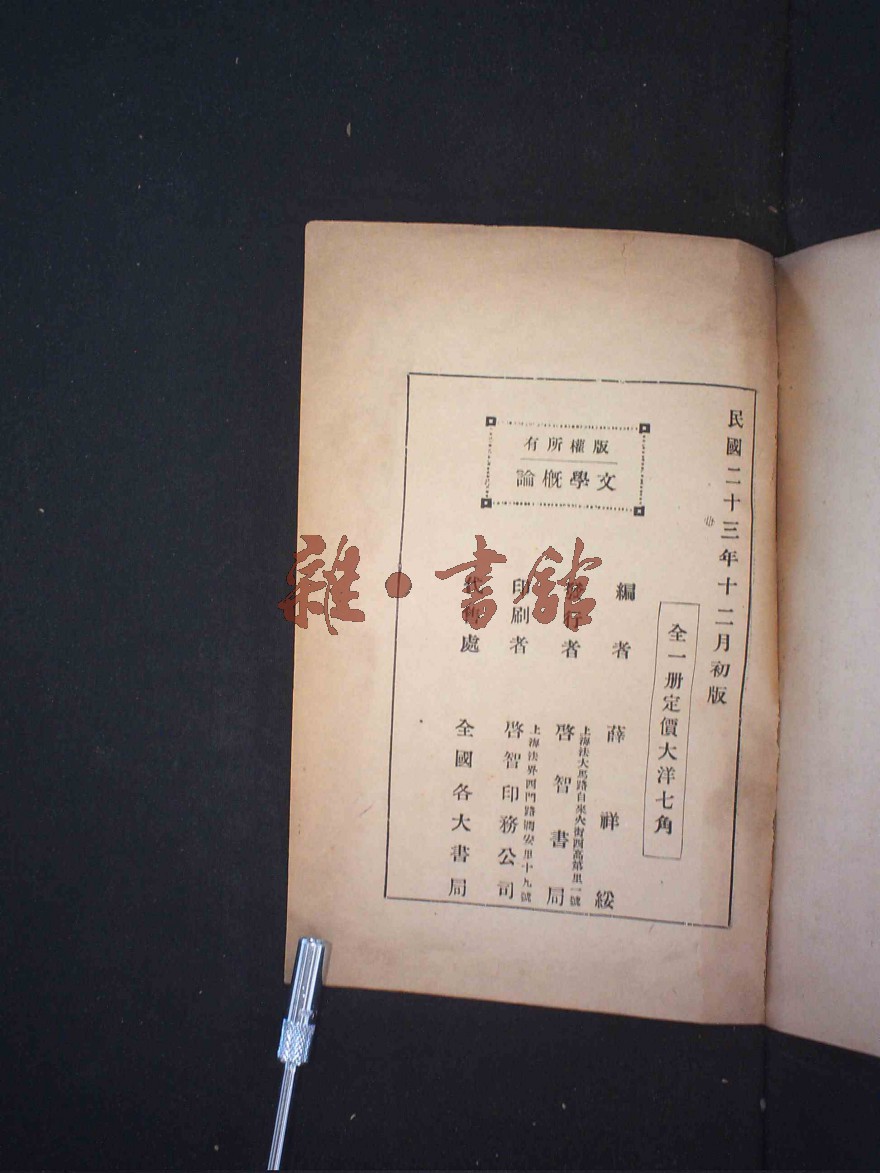 民國二十三年十二月初版
全一册定價大洋七角
版權所有
文學概論
編者 薛祥綏
發行者 啓智書局
上海法大馬路自來火街西高第里一號
印刷者 啓智印務公司
上海法界西門路潤安里十九號
代售處 全國各大書局
雜·書館